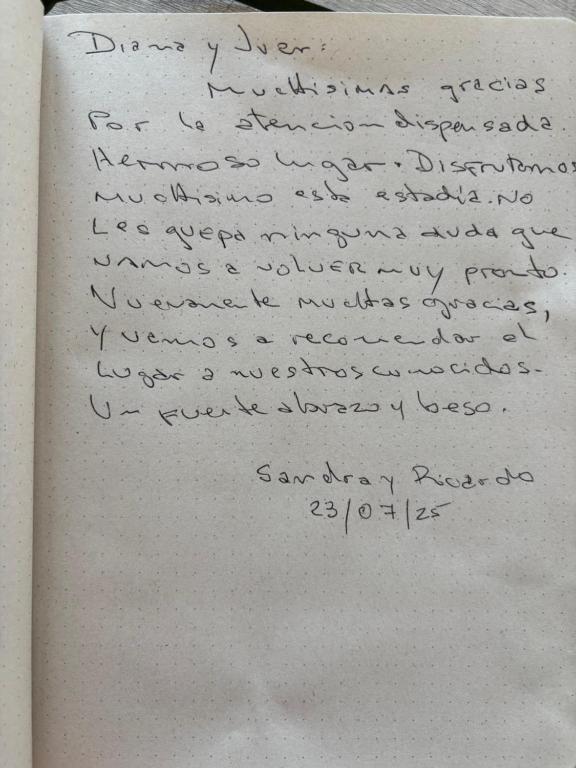 Diana y Iver:
Muchisimas gracias
Por la atencion dispensada.
Hermoso lugar. Disfrutamos
muchisimo esta estadía. No
Les quepa ninguna duda que
vamos a volver muy pronto.
Nuevamente muchas gracias,
y vamos a recomendar el
Lugar a nuestros conocidos.
Un fuerte abrazo y beso.
Sandra y Ricardo
23/07/25